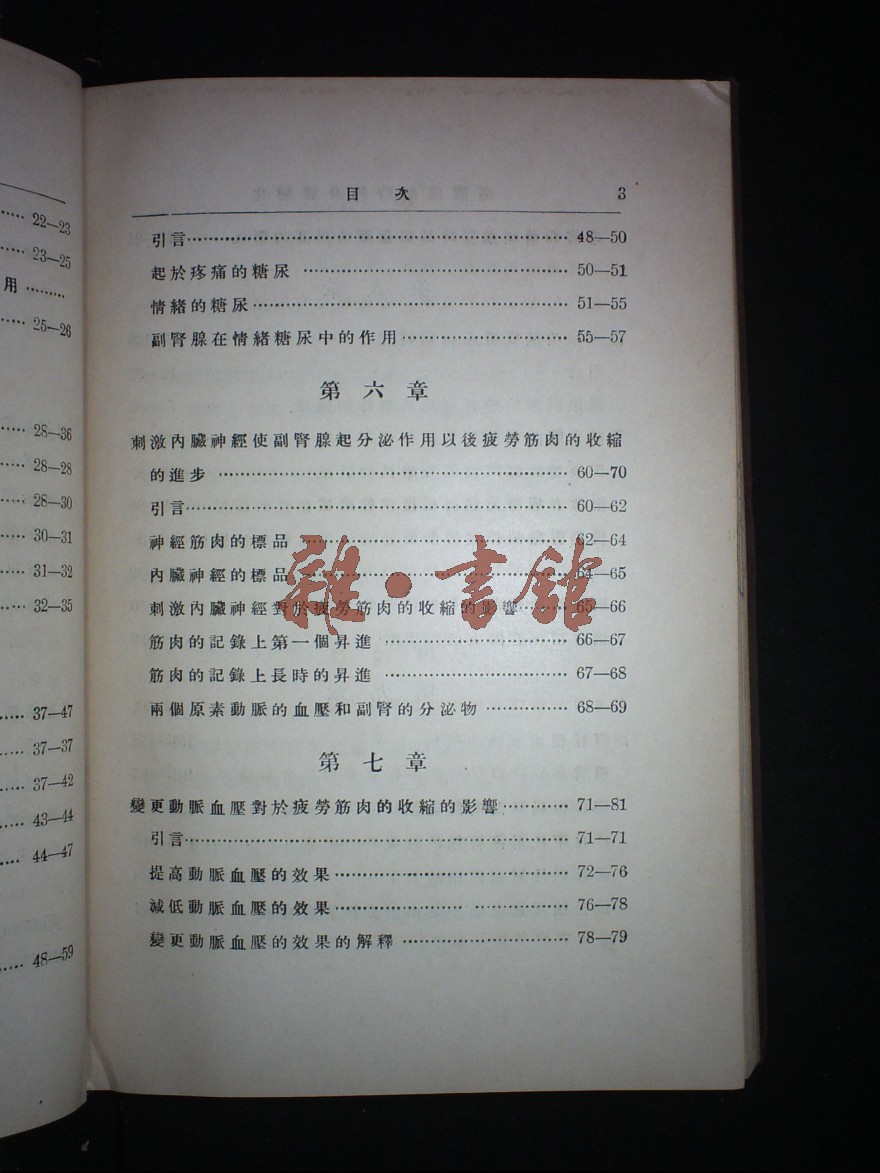 22—23
23—25
用………
25—26
28—36
28—28
28—30
30—31
31—32
32—35
37—47
37—37
37—42
43—44
44—47
48—59
目 次 3
引言 48—50
起於疼痛的糖尿 50—51
情緒的糖尿 51—55
副腎腺在情緒糖尿中的作用 55—57
第六章
刺激內臟神經使副腎腺起分泌作用以後疲勞筋肉的收縮
的進步 60—70
引言 60—62
神經筋肉的標品 62—64
內臟神經的標品 64—65
刺激內臟神經對於疲勞筋肉的收縮的影響 65—66
筋肉的記錄上第一個昇進 66—67
筋肉的記錄上長時的昇進 67—68
兩個原素動脈的血壓和副腎的分泌物 68—69
第七章
變更動脈血壓對於疲勞筋肉的收縮的影響 71—81
引言 71—71
提高動脈血壓的效果 72—76
減低動脈血壓的效果 76—78
變更動脈血壓的效果的解釋 78—79
雜·書館